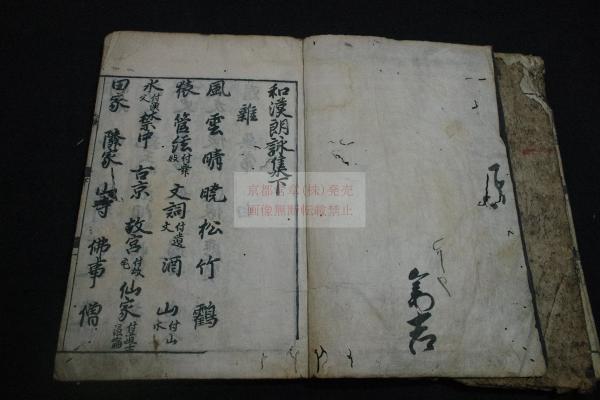 和漢朗詠集下
雜
風 雲 晴 暁 松 竹 鶴
猿 管絃付舞妓 文詞付遺文 酒 山付山水
水付漁父 禁中 古京 故宮付故宅 仙家付道士隠倫
田家 隣家 山寺 佛事 僧
京都書亭(株)発売
画像無断転載禁止